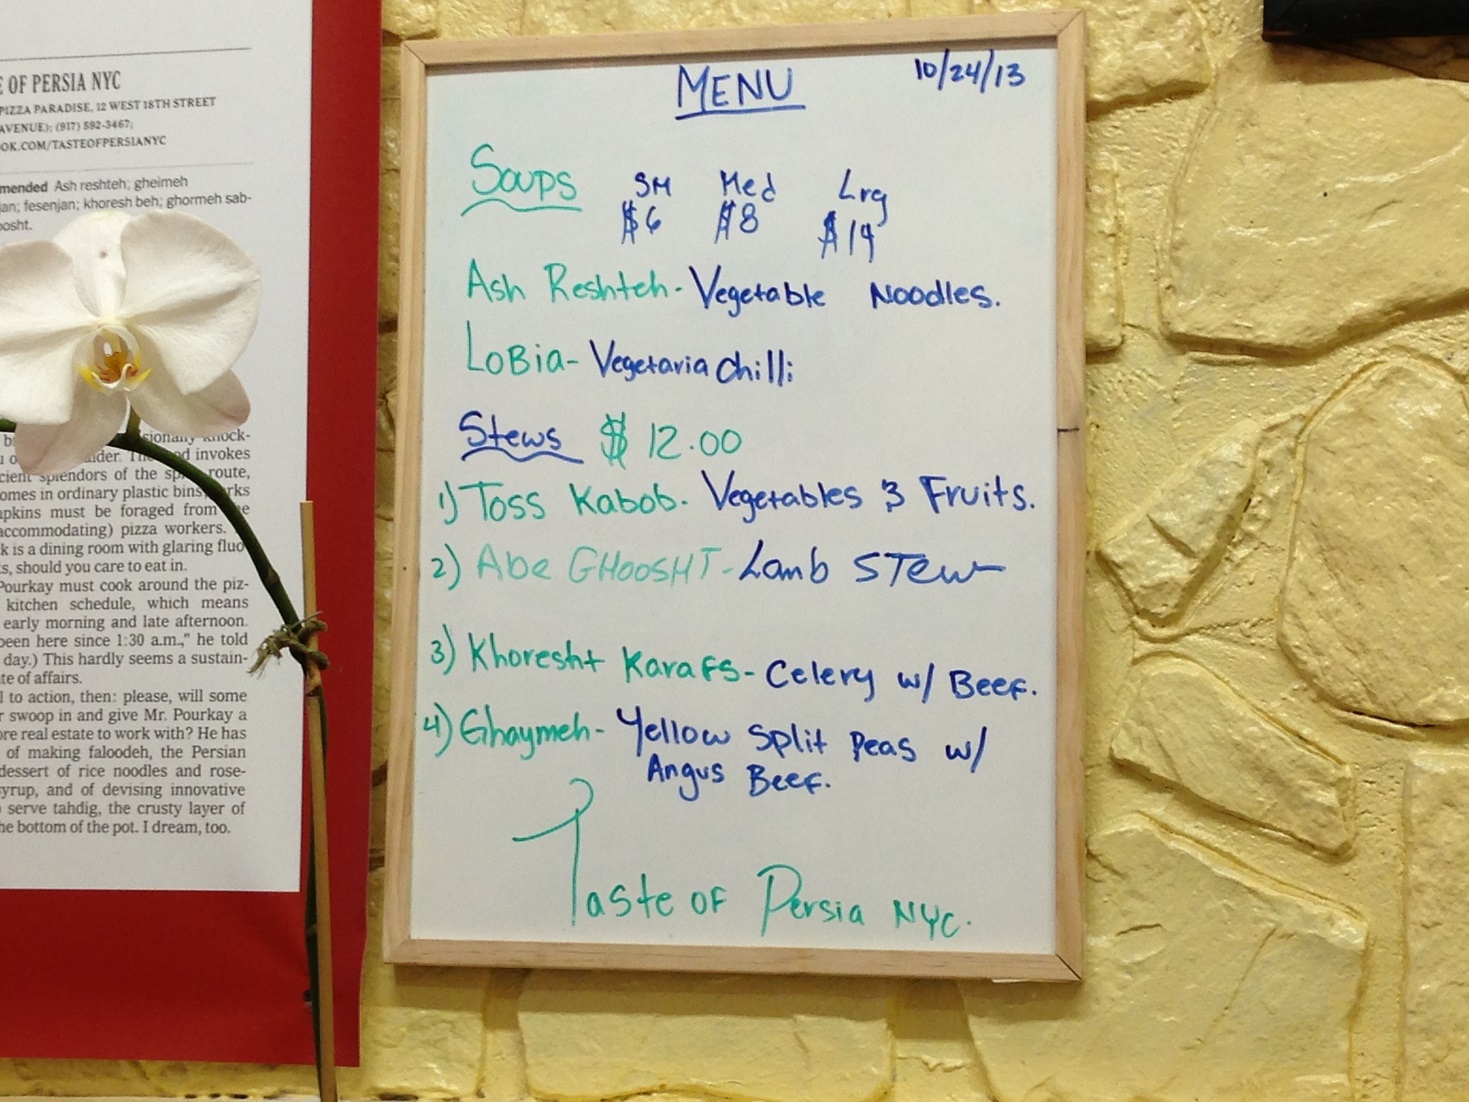 OF PERSIA NYC
PIZZA PARADISE, 12 WEST 18TH STREET
AVENUE); (917) 592-3467;
OK.COM/TASTEOFPERSIANYC
mended Ash reshteh; gheimeh
jan; fesenjan; khoresh beh; ghormeh sab-
oosht.
sionally knock-
invokes
splendors of the route,
omes in ordinary plastic bins,
pkins must be foraged from
accommodating) pizza workers.
k is a dining room with glaring fluo
s, should you care to eat in.
Pourkay must cook around the piz-
kitchen schedule, which means
early morning and late afternoon.
been here since 1:30 a.m.," he told
day.) This hardly seems a sustain-
te of affairs.
l to action, then: please, will some
r swoop in and give Mr. Pourkay a
ore real estate to work with? He has
of making faloodeh, the Persian
dessert of rice noodles and rose-
syrup, and of devising innovative
serve tahdig, the crusty layer of
he bottom of the pot. I dream, too.
MENU 10/24/13
Soups SM Med Lrg
$6 $8 $14
Ash Reshteh - Vegetable Noodles.
LoBia - Vegetaria Chilli
Stews $ 12.00
1) Toss Kabob - Vegetables & Fruits.
2) Abe GHOOSHT - Lamb STew
3) Khoresht Karafs - Celery w/ Beef.
4) Ghaymeh - Yellow Split Peas w/
Angus Beef.
Taste of Persia NYC.